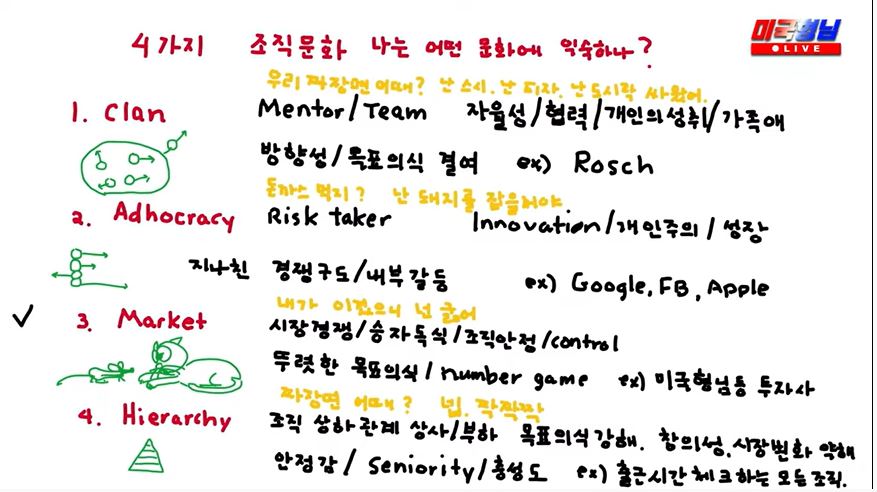 4가지 조직문화 나는 어떤 문화에 익숙하나?
미국형님
LIVE
우리 짜장면 어때? 난 스시. 난 피자. 난 도시락 싸왔어.
1. Clan Mentor/Team 자율성/협력/개인의성취/가족애
방향성/목표의식 결여 ex) Rosch
돈까스 먹지? 난 돼지를 잡을꺼야
2. Adhocracy Risk taker Innovation/개인주의/성장
지나친 경쟁구도/내부갈등 ex) Google, FB, Apple
내가 이겼으니 넌 굶어
3. Market 시장경쟁/승자독식/조직안정/control
뚜렷한 목표의식/number game ex) 미국형님등 투자사
짜장면 어때? 넵. 짝짝짝
4. Hierarchy 조직 상하관계 상사/부하 목표의식강해. 창의성, 시장변화 약해
안정감/Seniority/충성도 ex) 출근시간 체크하는 모든 조직.